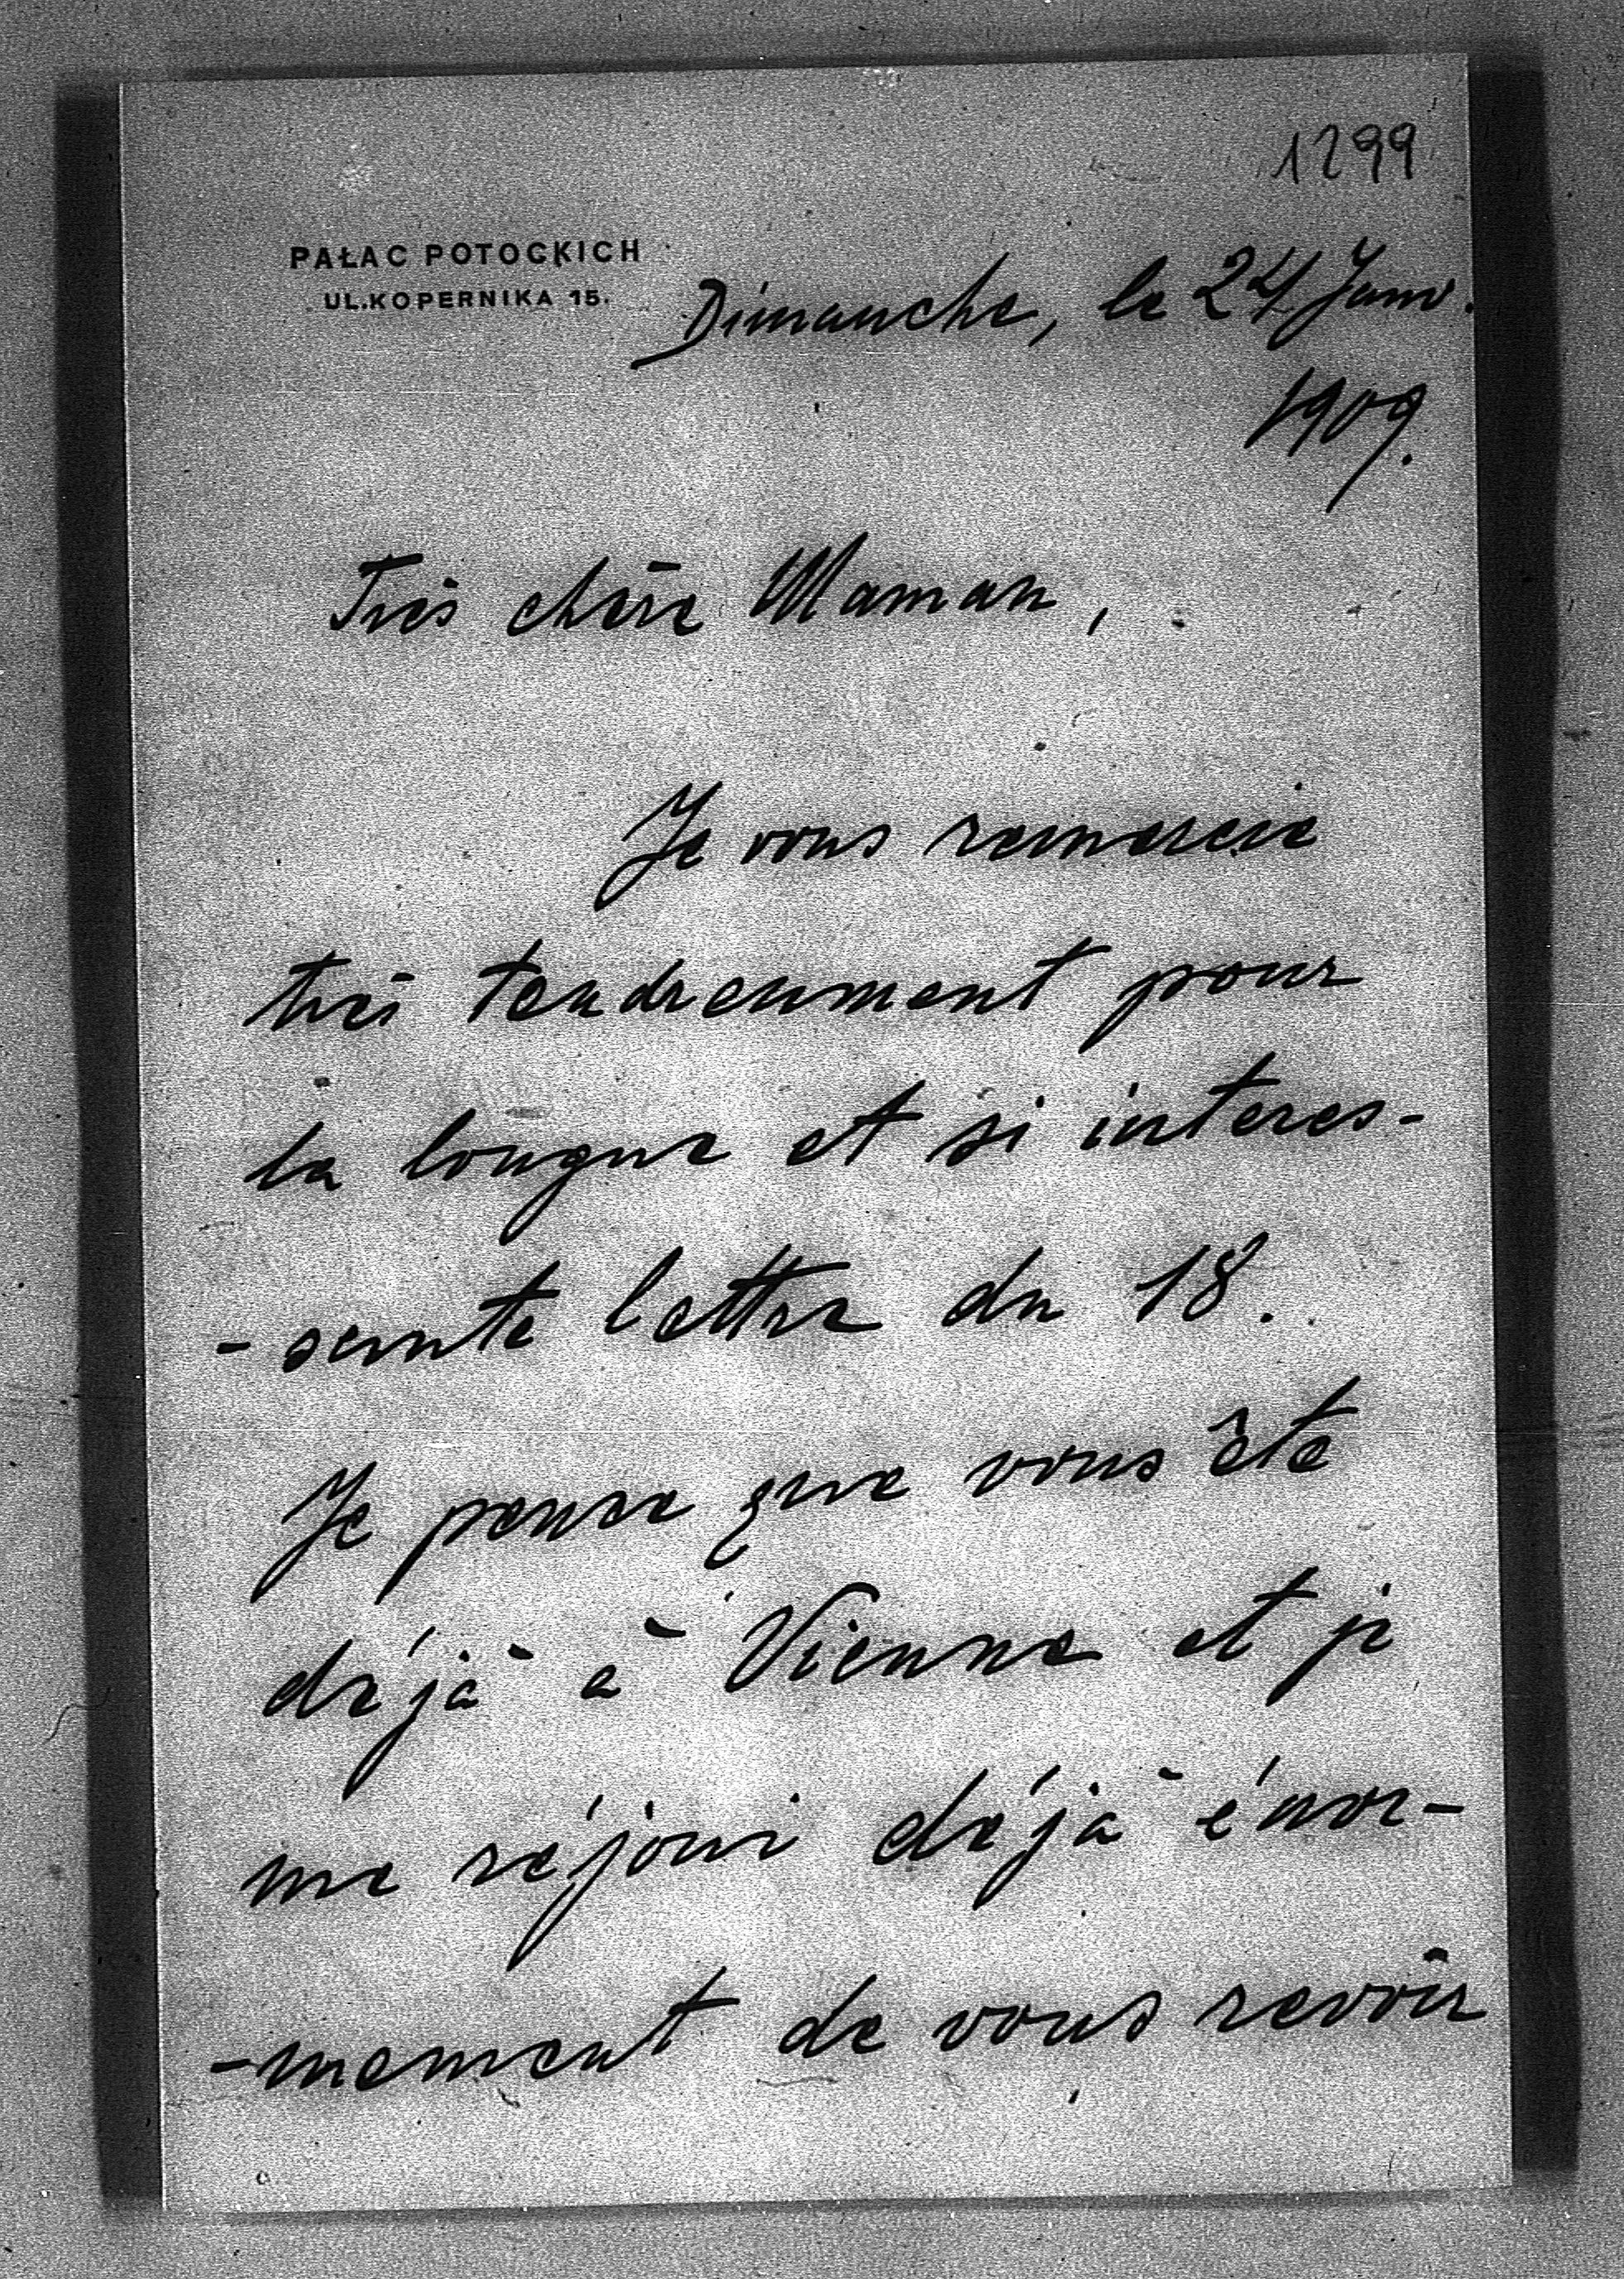 1299
PAŁAC POTOCKICH
UL.KOPERNIKA 15.
Dimanche, le 24 Janv.
1909.
Très chère Maman,
Je vous remercie
très tendrenment pour
la longue et si interes-
-sente lettre du 18.
Je pense que vous ête
déjà à Vienne et je
me réjoui déjà énor-
-mement de vous revoir